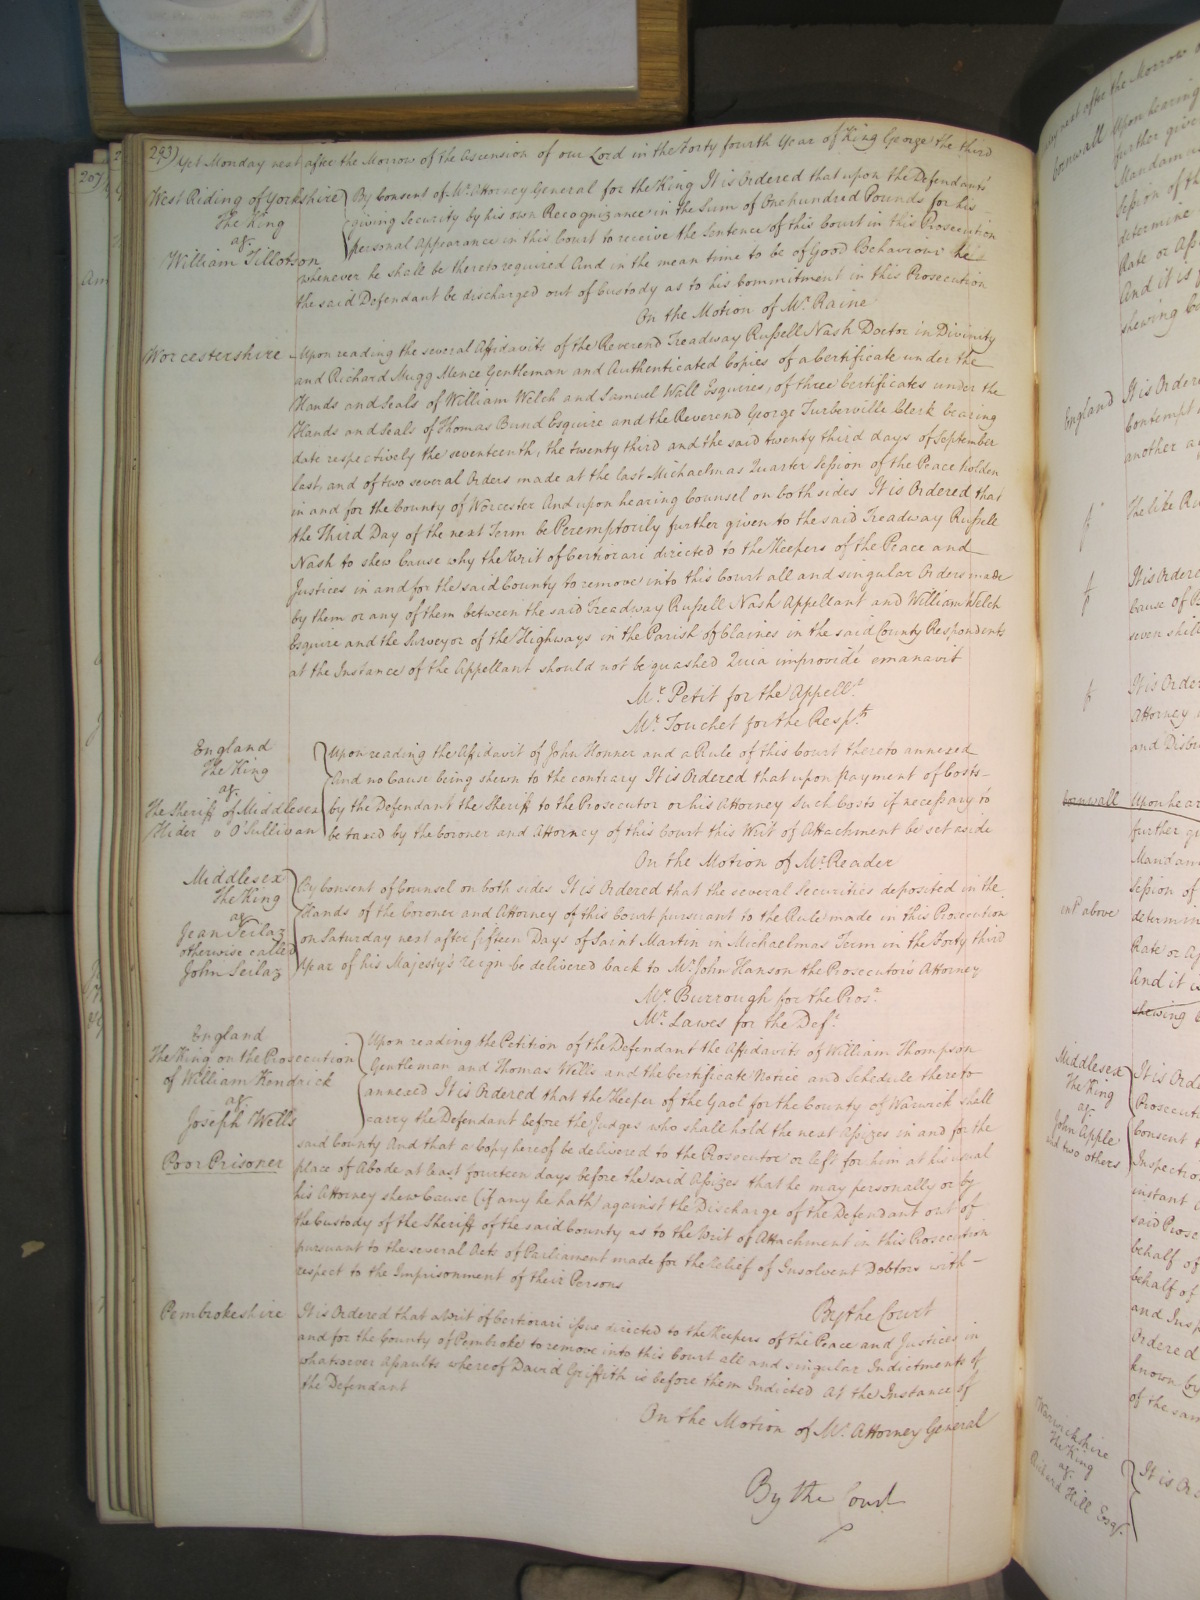 293) Yet Monday next after the Morrow of the Ascension of our Lord in the Forty fourth Year of King George the third
West Riding of Yorkshire
The King
agt
William Tillotson
By Consent of Mr. Attorney General for the King It is Ordered that upon the Defendants
giving Security by his own Recognizance in the Sum of One hundred Pounds for his
personal Appearance in this Court to receive the Sentence of this Court in this Prosecution
whenever he shall be thereto required And in the mean time to be of Good Behaviour he
the said Defendant be discharged out of Custody as to his Commitment in this Prosecution
On the Motion of Mr. Raine
Worcestershire
Upon reading the several Affidavits of the Reverend Treadway Russell Nash Doctor in Divinity
and Richard Mugg Mence Gentleman and Authenticated Copies of a Certificate under the
Hands and Seals of William Welch and Samuel Wall Esquires, of three Certificates under the
Hands and Seals of Thomas Bund Esquire and the Reverend George Turberville Clerk bearing
date respectively the seventeenth, the twenty third and the said twenty third days of September
last, and of two several Orders made at the last Michaelmas Quarter Session of the Peace holden
in and for the County of Worcester And upon hearing Counsel on both sides It is Ordered that
the Third Day of the next Term be Peremptorily further given to the said Treadway Russell
Nash to shew Cause why the Writ of Certiorari directed to the Keepers of the Peace and
Justices in and for the said County to remove into this Court all and singular Orders made
by them or any of them between the said Treadway Russell Nash Appellant and William Welch
Esquire and the Surveyor of the Highways in the Parish of Claines in the said County Respondents
at the Instance of the Appellant should not be quashed Quia improvidé emanavit
Mr. Petit for the Appellt.
Mr. Touchet for the Respts.
England
The King
agt
The Sheriff of Middlesex
Hider v O'Sullivan
Upon reading the Affidavit of John Honner and a Rule of this Court thereto annexed
And no Cause being shewn to the contrary It is Ordered that upon Payment of Costs
by the Defendant the Sheriff to the Prosecutor or his Attorney Such Costs if necessary to
be taxed by the Coroner and Attorney of this Court this Writ of Attachment be set aside
On the Motion of Mr. Reader
Middlesex
The King
agt
Jean Seilaz
otherwise called
John Seilaz
By Consent of Counsel on both sides It is Ordered that the several Securities deposited in the
Hands of the Coroner and Attorney of this Court pursuant to the Rule made in this Prosecution
on Saturday next after fifteen Days of Saint Martin in Michaelmas Term in the Forty third
Year of his Majesty's reign be delivered back to Mr. John Hanson the Prosecutor's Attorney
Mr. Burrough for the Pros.
Mr. Lawes for the Deft.
England
The King on the Prosecution
of William Kendrick
agt
Joseph Wells
Poor Prisoner
Upon reading the Petition of the Defendant the Affidavits of William Thompson
Gentleman and Thomas Wells and the Certificate Notice and Schedule thereto
annexed It is Ordered that the Keeper of the Gaol for the County of Warwick shall
carry the Defendant before the Judges who shall hold the next Assizes in and for the
said County And that a Copy hereof be delivered to the Prosecutor or left for him at his usual
place of Abode at least fourteen days before the said Assizes that he may personally or by
his Attorney shew Cause (if any he hath) against the Discharge of the Defendant out of
the Custody of the Sheriff of the said County as to the Writ of Attachment in this Prosecution
pursuant to the several Acts of Parliament made for the Relief of Insolvent Debtors with
respect to the Imprisonment of their Persons
By the Court
Pembrokeshire
It is Ordered that a Writ of Certiorari issue directed to the Keepers of the Peace and Justices in
and for the County of Pembroke to remove into this Court all and singular Indictments of
whatsoever Assaults whereof David Griffith is before them Indicted At the Instance of
the Defendant
On the Motion of Mr. Attorney General
By the Court
day next after the Morrow
Cornwall
Upon hearing
further give
Mandam
Session of th
determine
Rate or As
And it is
shewing
England
It is Ordere
Contempt
another a
The like Ru
It is Ordere
Cause of
seven shill
It is Order
Attorney
and Disbu
Cornwall
Upon hear
further g
Mandam
Session of
entd. above
determin
Rate or A
And it i
shewing
Middlesex
The King
agt
John Apple
and two others
It is Orde
Prosecut
Consent
Inspectio
instant
said Prose
behalf of
behalf of
and Insp
Ordered
known by
of the sam
Warwickshire
The King
agt
Richard Hill Esqr.
It is Or
207
Am